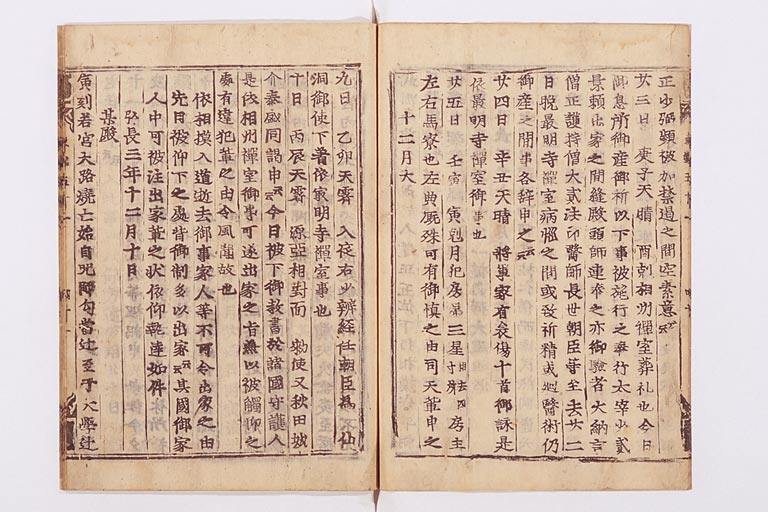 正少弼頭破加禁遏之間空素意云々
廿三日 庚子天晴 酉剋相州禪室葬礼也今日
御息所御産御祈以下事被施行之奉行太宰少貳
景頼出家之間縫殿頭師連奉之亦御驗者大納言
僧正護持僧大貳法印醫師長世朝臣等至去廿二
日晩最明寺禪室病惱之間或致祈精或施醫術仍
御産之間事各辞申之云々
廿四日 辛丑天晴 將軍家有哀傷十首御詠是
依最明寺禪室御事也
廿五日 壬寅 寅剋月犯房第三星相去四寸所房主
左右馬寮也左典厩殊可有御慎之由司天輩申之
十二月大
九日 乙卯天霽 入夜右少辨経任朝臣爲不仙
洞御使下著依最明寺禪室事也
十日 丙辰天霽 源亞相對面 勅使又秋田城
介泰盛同謁申云々今日被下御教書於諸國守護人
是依相州禪室御事可遂出家之旨無以被觸仰之
處有違犯輩之由令風聞故也
依相摸入道逝去御事家人等不可令出家之由
先日被仰下之處背御制多以出家云々其國御家
人中可被注出家輩之状依仰執達如件
弘長三年十二月十日
某殿
寅刻若宮大路燒亡始自咒師勾當辻至于大學辻